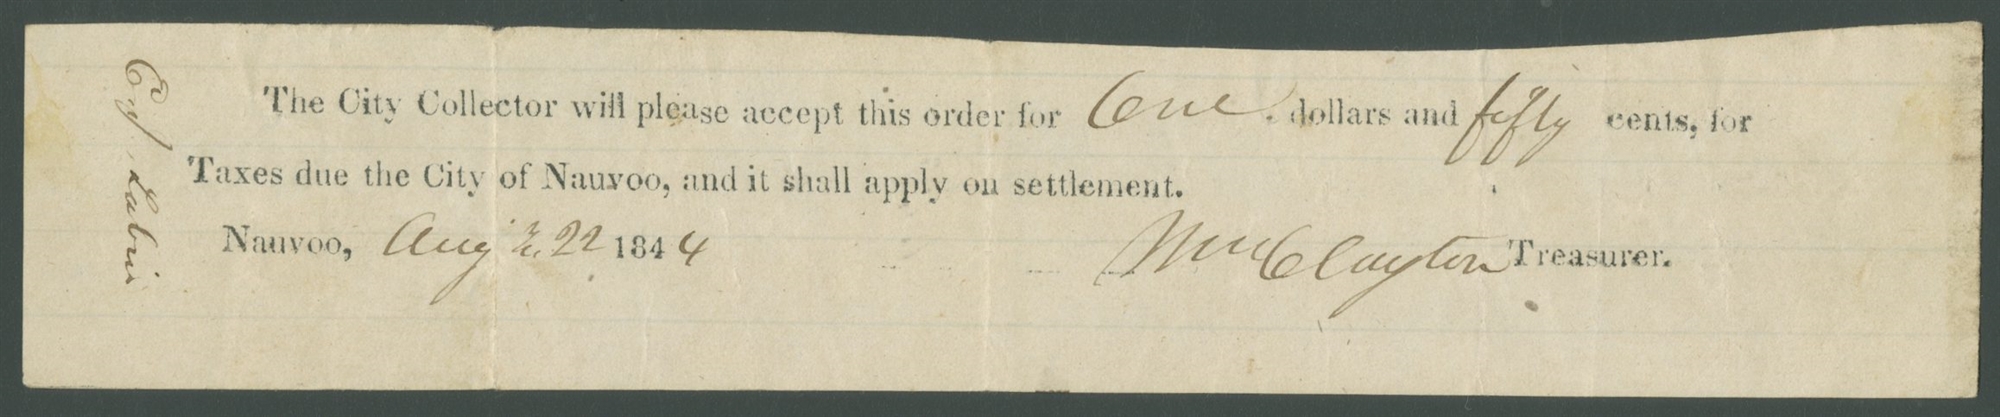 The City Collector will please accept this order for One dollars and fifty cents, for
Taxes due the City of Nauvoo, and it shall apply on settlement.
Nauvoo, Aug 22 1844 Wm Clayton Treasurer.